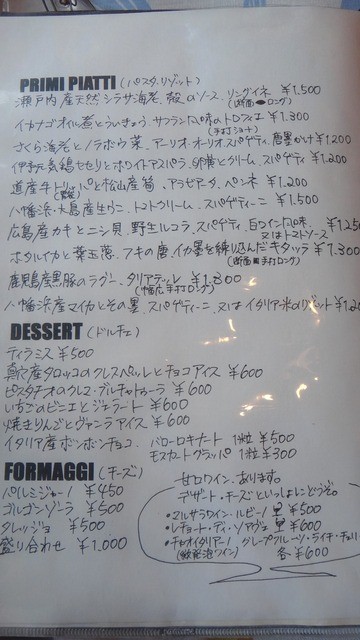 PRIMI PIATTI (パスタ、リゾット)
瀬戸内産天然シラサ海老、殻のソース、リングイネ ¥1.500
(断面 ロング)
イカナゴオイル煮とういきょう、サフラン風味のトロフィエ ¥1.300
(手打ショート)
さくら海老とノラボウ菜、アーリオ・オーリオ、スパゲティ、唐墨がけ ¥1.200
伊予元気鶏セセリとホワイトアスパラ、卵黄とクリーム、スパゲティ ¥1.200
道産牛トリッパと松山産筍、アラビアータ、ペンネ ¥1.200
八幡浜・大島産生ウニ、トマトクリーム、スパゲティーニ ¥1.500
広島産カキとニシ貝、野生ルコラ、スパゲティ、白ワイン風味
又はトマトソース
ホタルイカと葉玉葱、フキの唐、イカ墨を練り込んだキタッラ ¥1.300
(断面■手打ロング)
鹿児島産黒豚のラグー、タリアテッレ ¥1.300
(幅広手打ロング)
八幡浜産マイカとその墨、スパゲティーニ 又は イタリア米のリゾット
DESSERT (ドルチェ)
ティラミス ¥500
真穴産タロッコのクレスペッレとチョコアイス ¥600
ピスタチオのクレマ・ブルチャトゥーラ ¥600
いちごのビニエとジェラート ¥600
焼きりんごとヴァニラアイス ¥600
イタリア産ボンボンチョコ、 バローロキナート 1粒 ¥500
モスカートグラッパ 1粒 ¥300
FORMAGGI (チーズ)
パルミジャーノ ¥450
ゴルゴンゾーラ ¥500
タレッジョ ¥500
盛り合わせ ¥1.000
甘口ワイン、あります。
デザート・チーズといっしょにどうぞ。
・マルサラワイン・ルビーノ ¥500
・レチョート・ディ・ソアヴェ ¥600
・チャオイタリア! グレープフルーツ・ライチ・チェリー
(微発泡ワイン) 各¥600